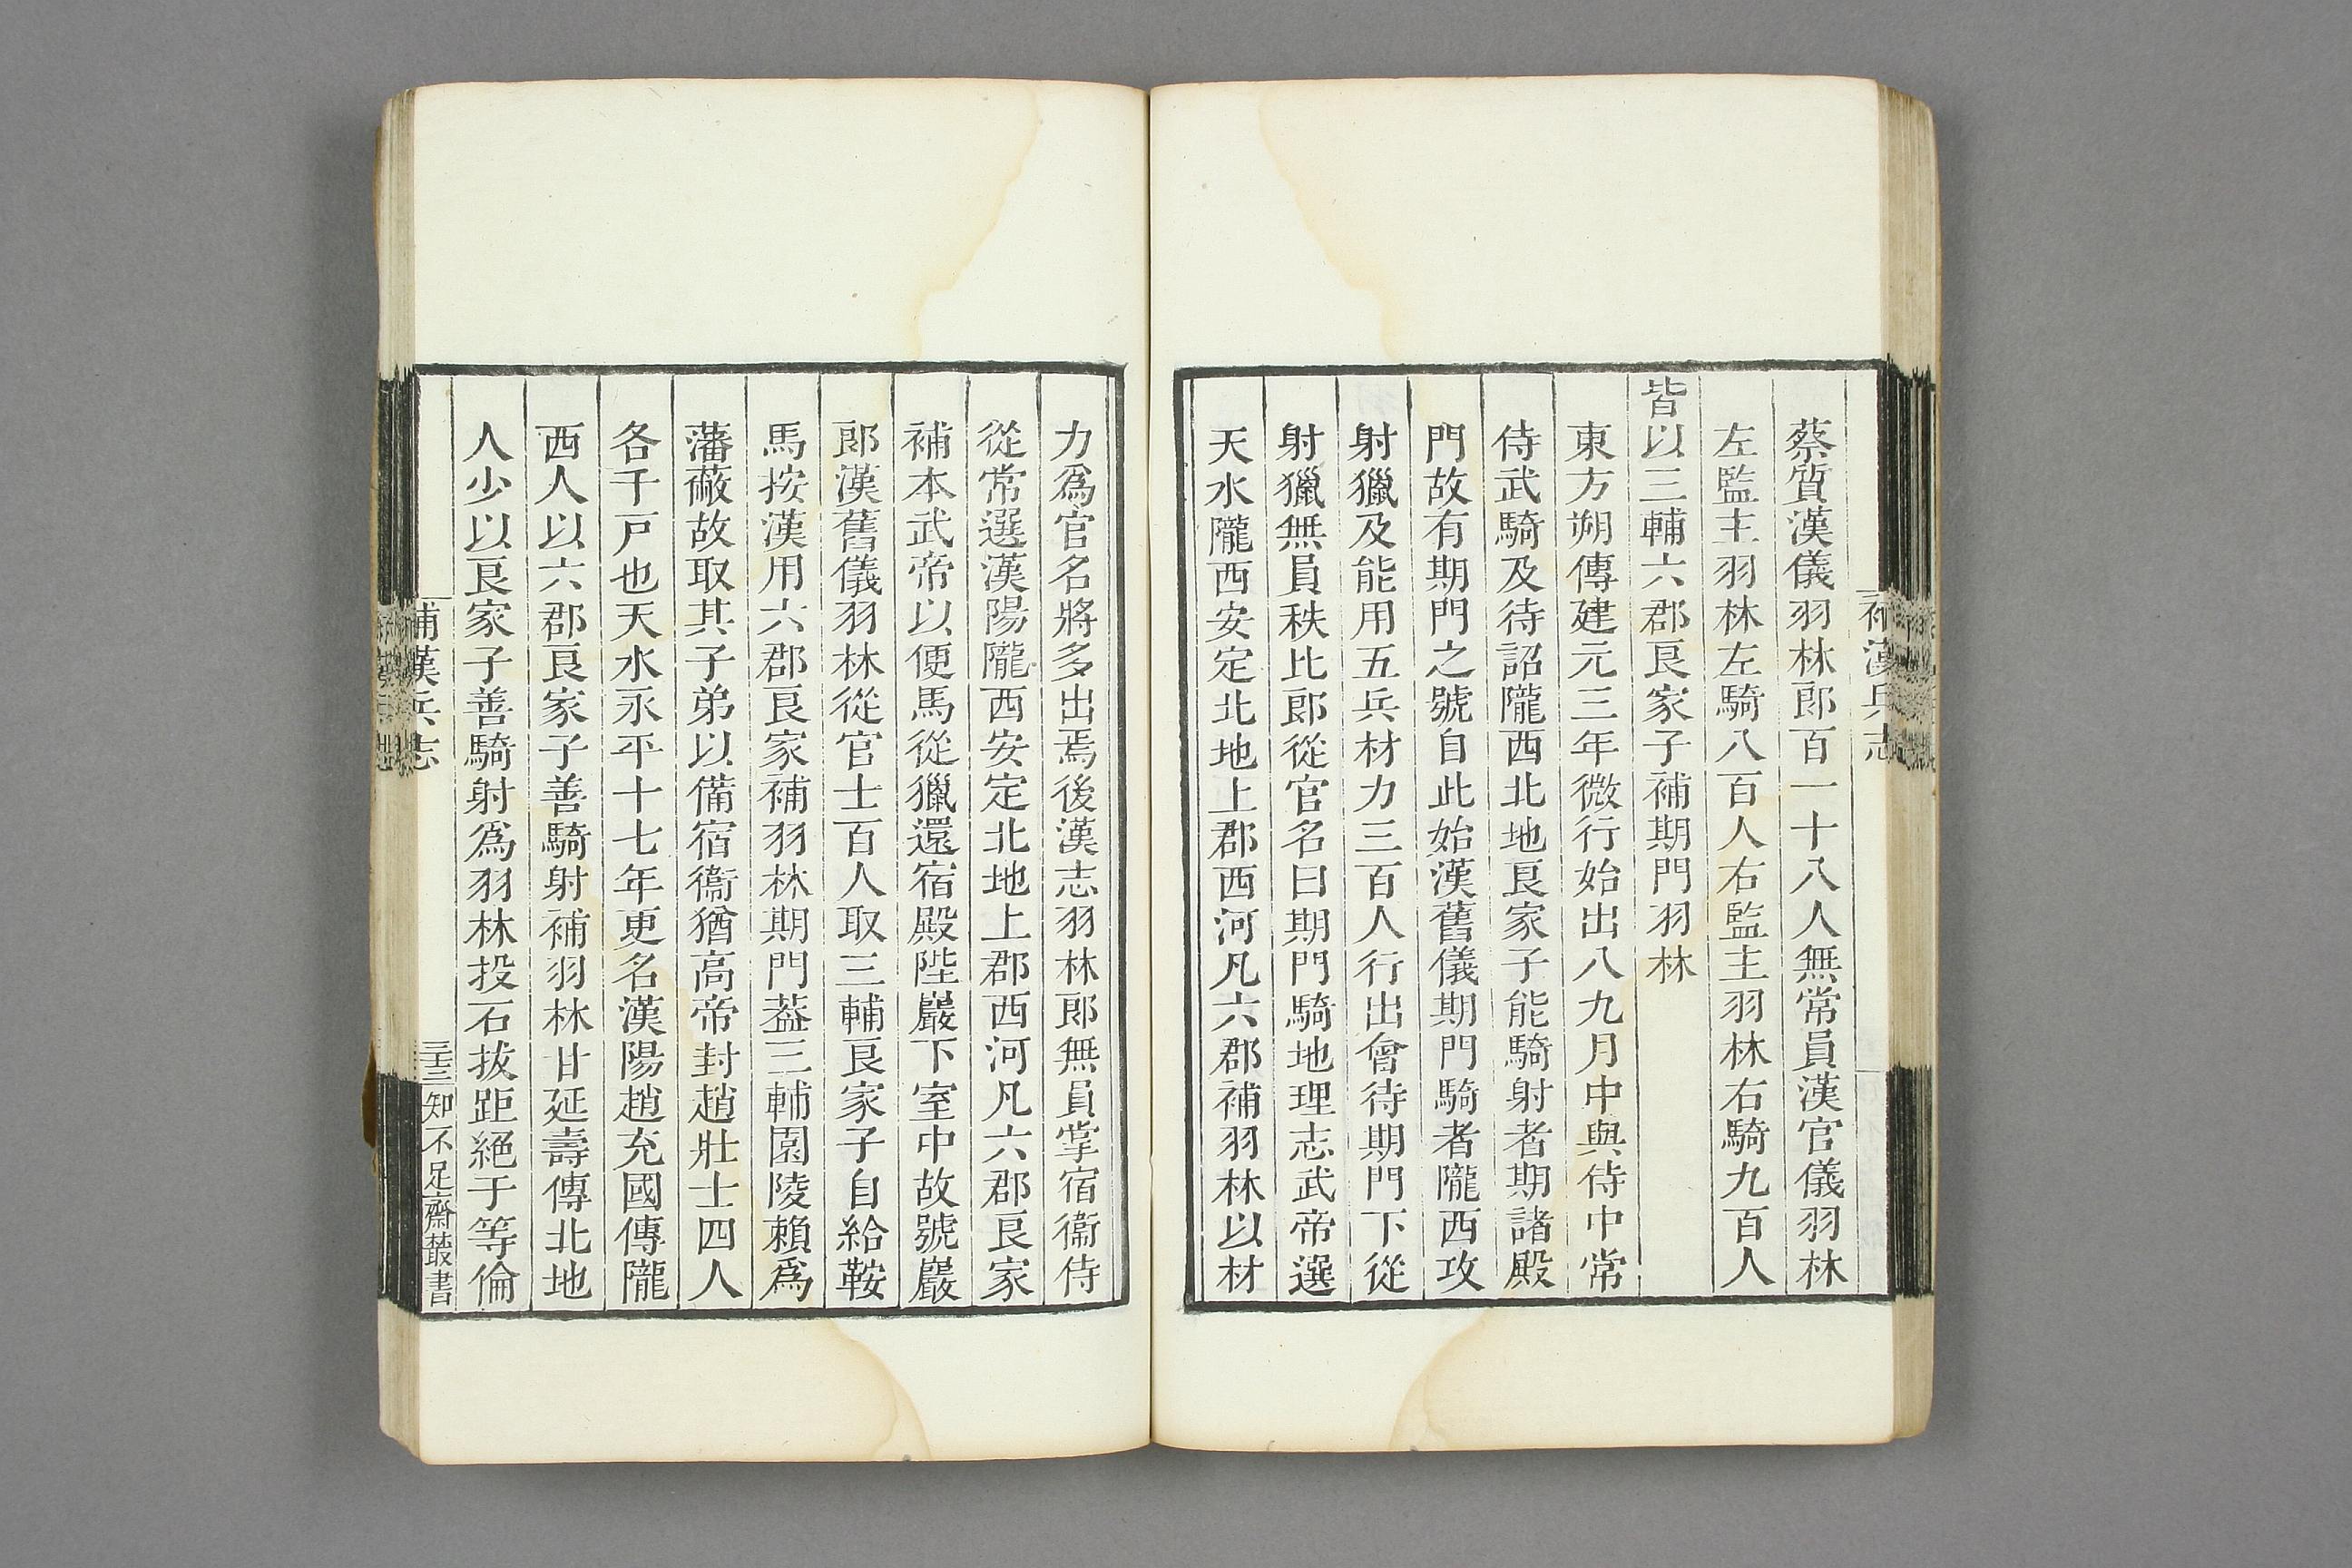 補漢兵志
蔡質漢儀羽林郎百一十八人無常員漢官儀羽林
左監主羽林左騎八百人右監主羽林右騎九百人
皆以三輔六郡良家子補期門羽林
東方朔傳建元三年微行始出八九月中與侍中常
侍武騎及待詔隴西北地良家子能騎射者期諸殿
門故有期門之號自此始漢舊儀期門騎者隴西攻
射獵及能用五兵材力三百人行出會待期門下從
射獵無員秩比郎從官名曰期門騎地理志武帝選
天水隴西安定北地上郡西河凡六郡補羽林以材
力爲官名將多出焉後漢志羽林郎無員掌宿衞侍
從常選漢陽隴西安定北地上郡西河凡六郡良家
補本武帝以便馬從獵還宿殿陛巖下室中故號巖
郎漢舊儀羽林從官士百人取三輔良家子自給鞍
馬按漢用六郡良家補羽林期門葢三輔園陵賴爲
藩蔽故取其子弟以備宿衞猶高帝封趙壯士四人
各千戸也天水永平十七年更名漢陽趙充國傳隴
西人以六郡良家子善騎射補羽林甘延壽傳北地
人少以良家子善騎射爲羽林投石拔距絕于等倫
補漢兵志
知不足齋叢書